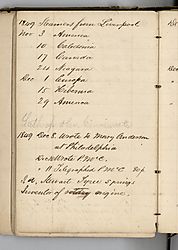 1849 Steamers from Liverpool
Nov 3 America
10 Caledonia
17 Canada
24 Niagara
Dec 1 Europa
15 Hibernia
29 America
1849 Dec 8. Wrote to Mary Anderson
at Philadelphia
Wrote P McC.
" Telegraphed P McC
Stewart Tyree Springs
Inventor of rotary engine.